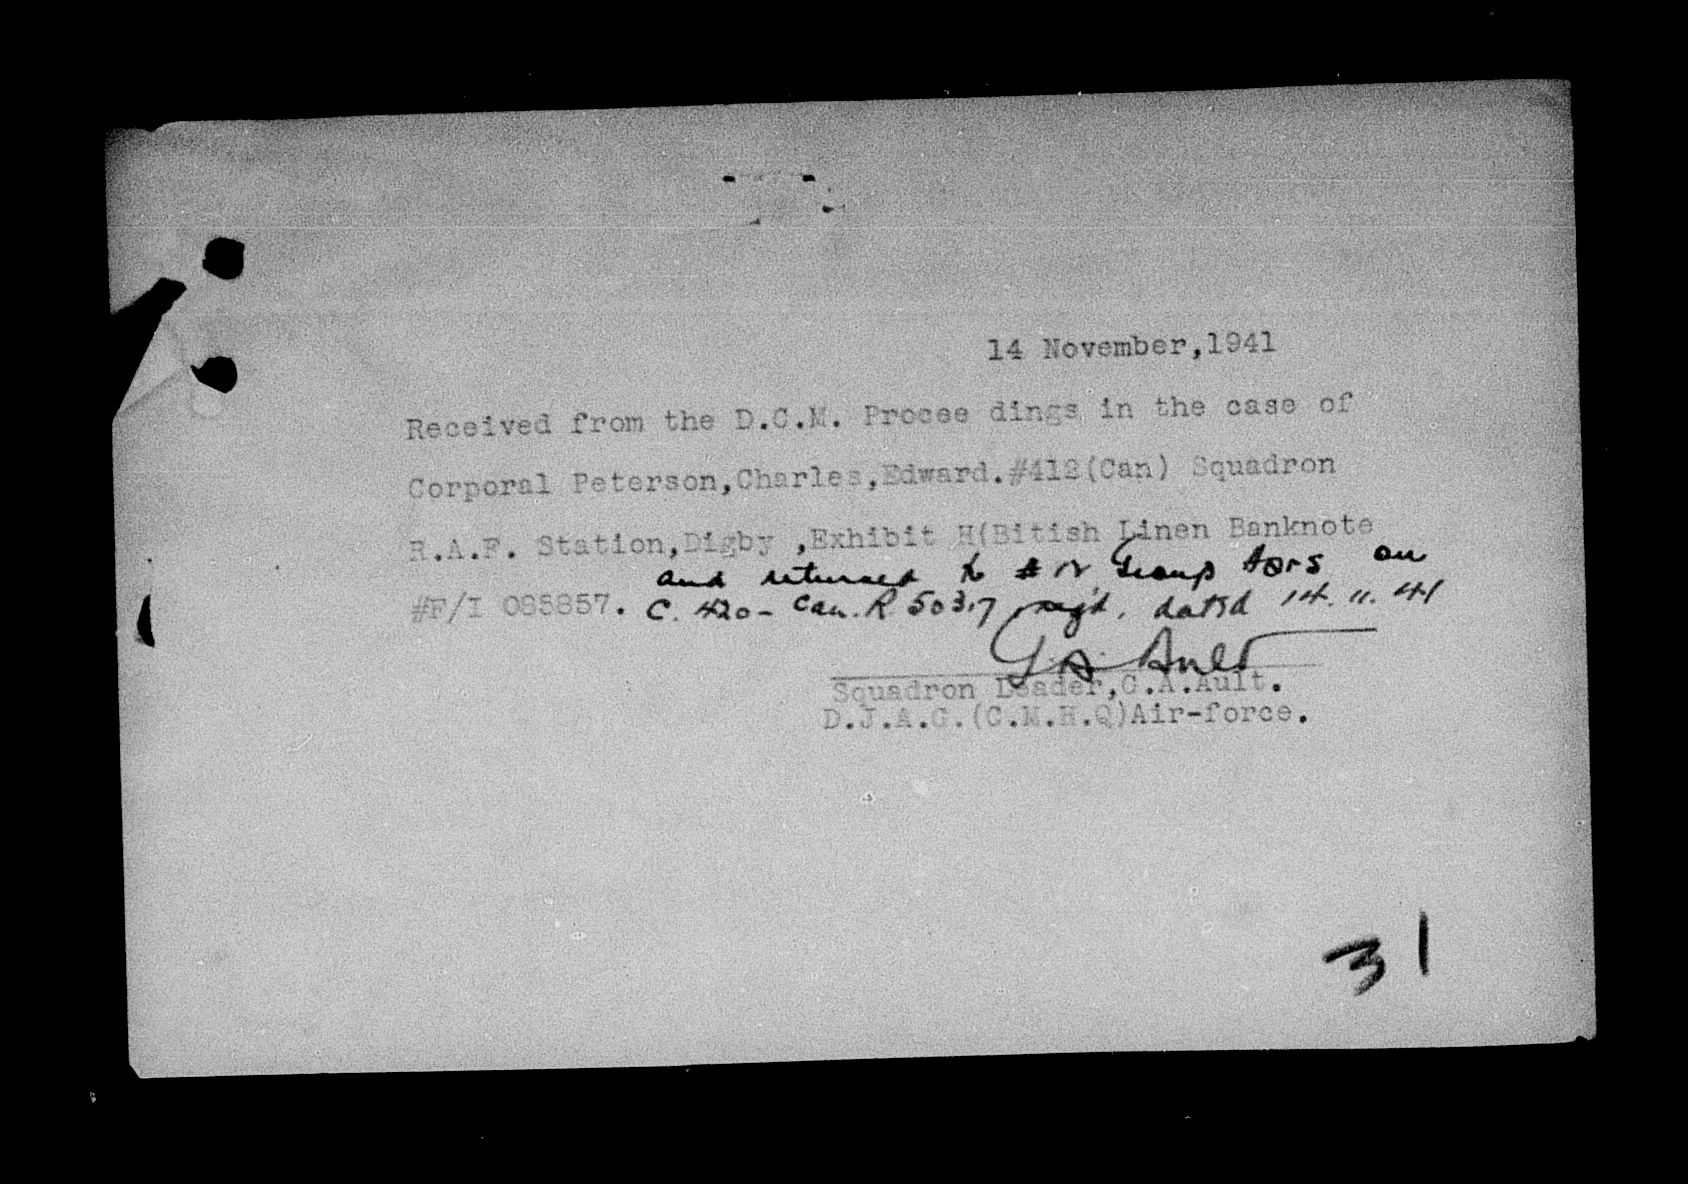 14 November,1941
Received from the D.C.M. Procee dings in the case of
Corporal Peterson,Charles,Edward.#412(Can) Squadron
R.A.F. Station,Digby ,Exhibit H(Bitish Linen Banknote
and returned to # 12 Group Hqrs on
#F/I 085857. C. 420 - Can. R 5037 reg'd. dated 14.11.41
G A Ault
Squadron Leader,G.A.Ault.
D.J.A.G.(C.M.H.Q)Air-force.
31